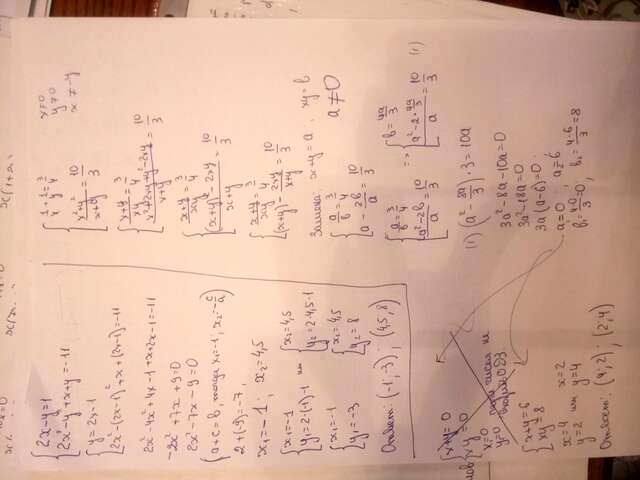 {2x-y=1
2x²-y²+x+y=-11
{y=2x-1
2x²-(2x-1)²+x+(2x-1)=-11
2x²-4x²+4x-1+x+2x-1=-11
-2x²+7x+9=0
2x²-7x-9=0
(a+c=b, тогда x₁=-1, x₂=-c/a)
2+(-9)=-7,
x₁=-1; x₂=4,5
{x₁=-1
y₁=2·(-1)-1 или {x₂=4,5
y₂=2·4,5-1
{x₁=-1
y₁=-3 {x₂=4,5
y₂=8
Ответ: (-1;-3); (4,5;8)
{1/x+1/y=3/4
(x²+y²)/(x+y)=10/3
x≠0
y≠0
x≠-y
{(x+y)/xy=3/4
(x²+2xy+y²-2xy)/(x+y)=10/3
{(x+y)/xy=3/4
((x+y)²-2xy)/(x+y)=10/3
{(x+y)/xy=3/4
(x+y)-2xy/(x+y)=10/3
Замена: x+y=a, xy=b
a≠0
{a/b=3/4
a-2b/a=10/3
{a/b=3/4
(a²-2b)/a=10/3 => {b=4a/3
(a²-2·4a/3)/a=10/3 (1)
(1) (a²-8a/3)·3=10a
3a²-8a-10a=0
3a²-18a=0
3a(a-6)=0
a=0; a=6
b₁=4·0/3=0, b₂=4·6/3=8
{x+y=0
xy=0
x=0
y=0
числа не
входят в ОДЗ.
{x+y=6
xy=8
x=4
y=2 или x=2
y=4
Ответ: (4;2); (2;4)